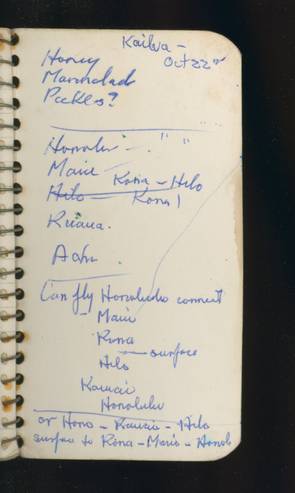 Kailua -
Oct 22nd
Honey
Marmalade
Pickles?
Honolulu - . " "
Maui
Kona - Hilo
Hilo - Kona!
Kauai.
Can fly Honolulu connect
Maui
Kona
- surface
Hilo
Kauai
Honolulu
or Hono - Kauai - Hilo
surface to Kona - Maui - Honol